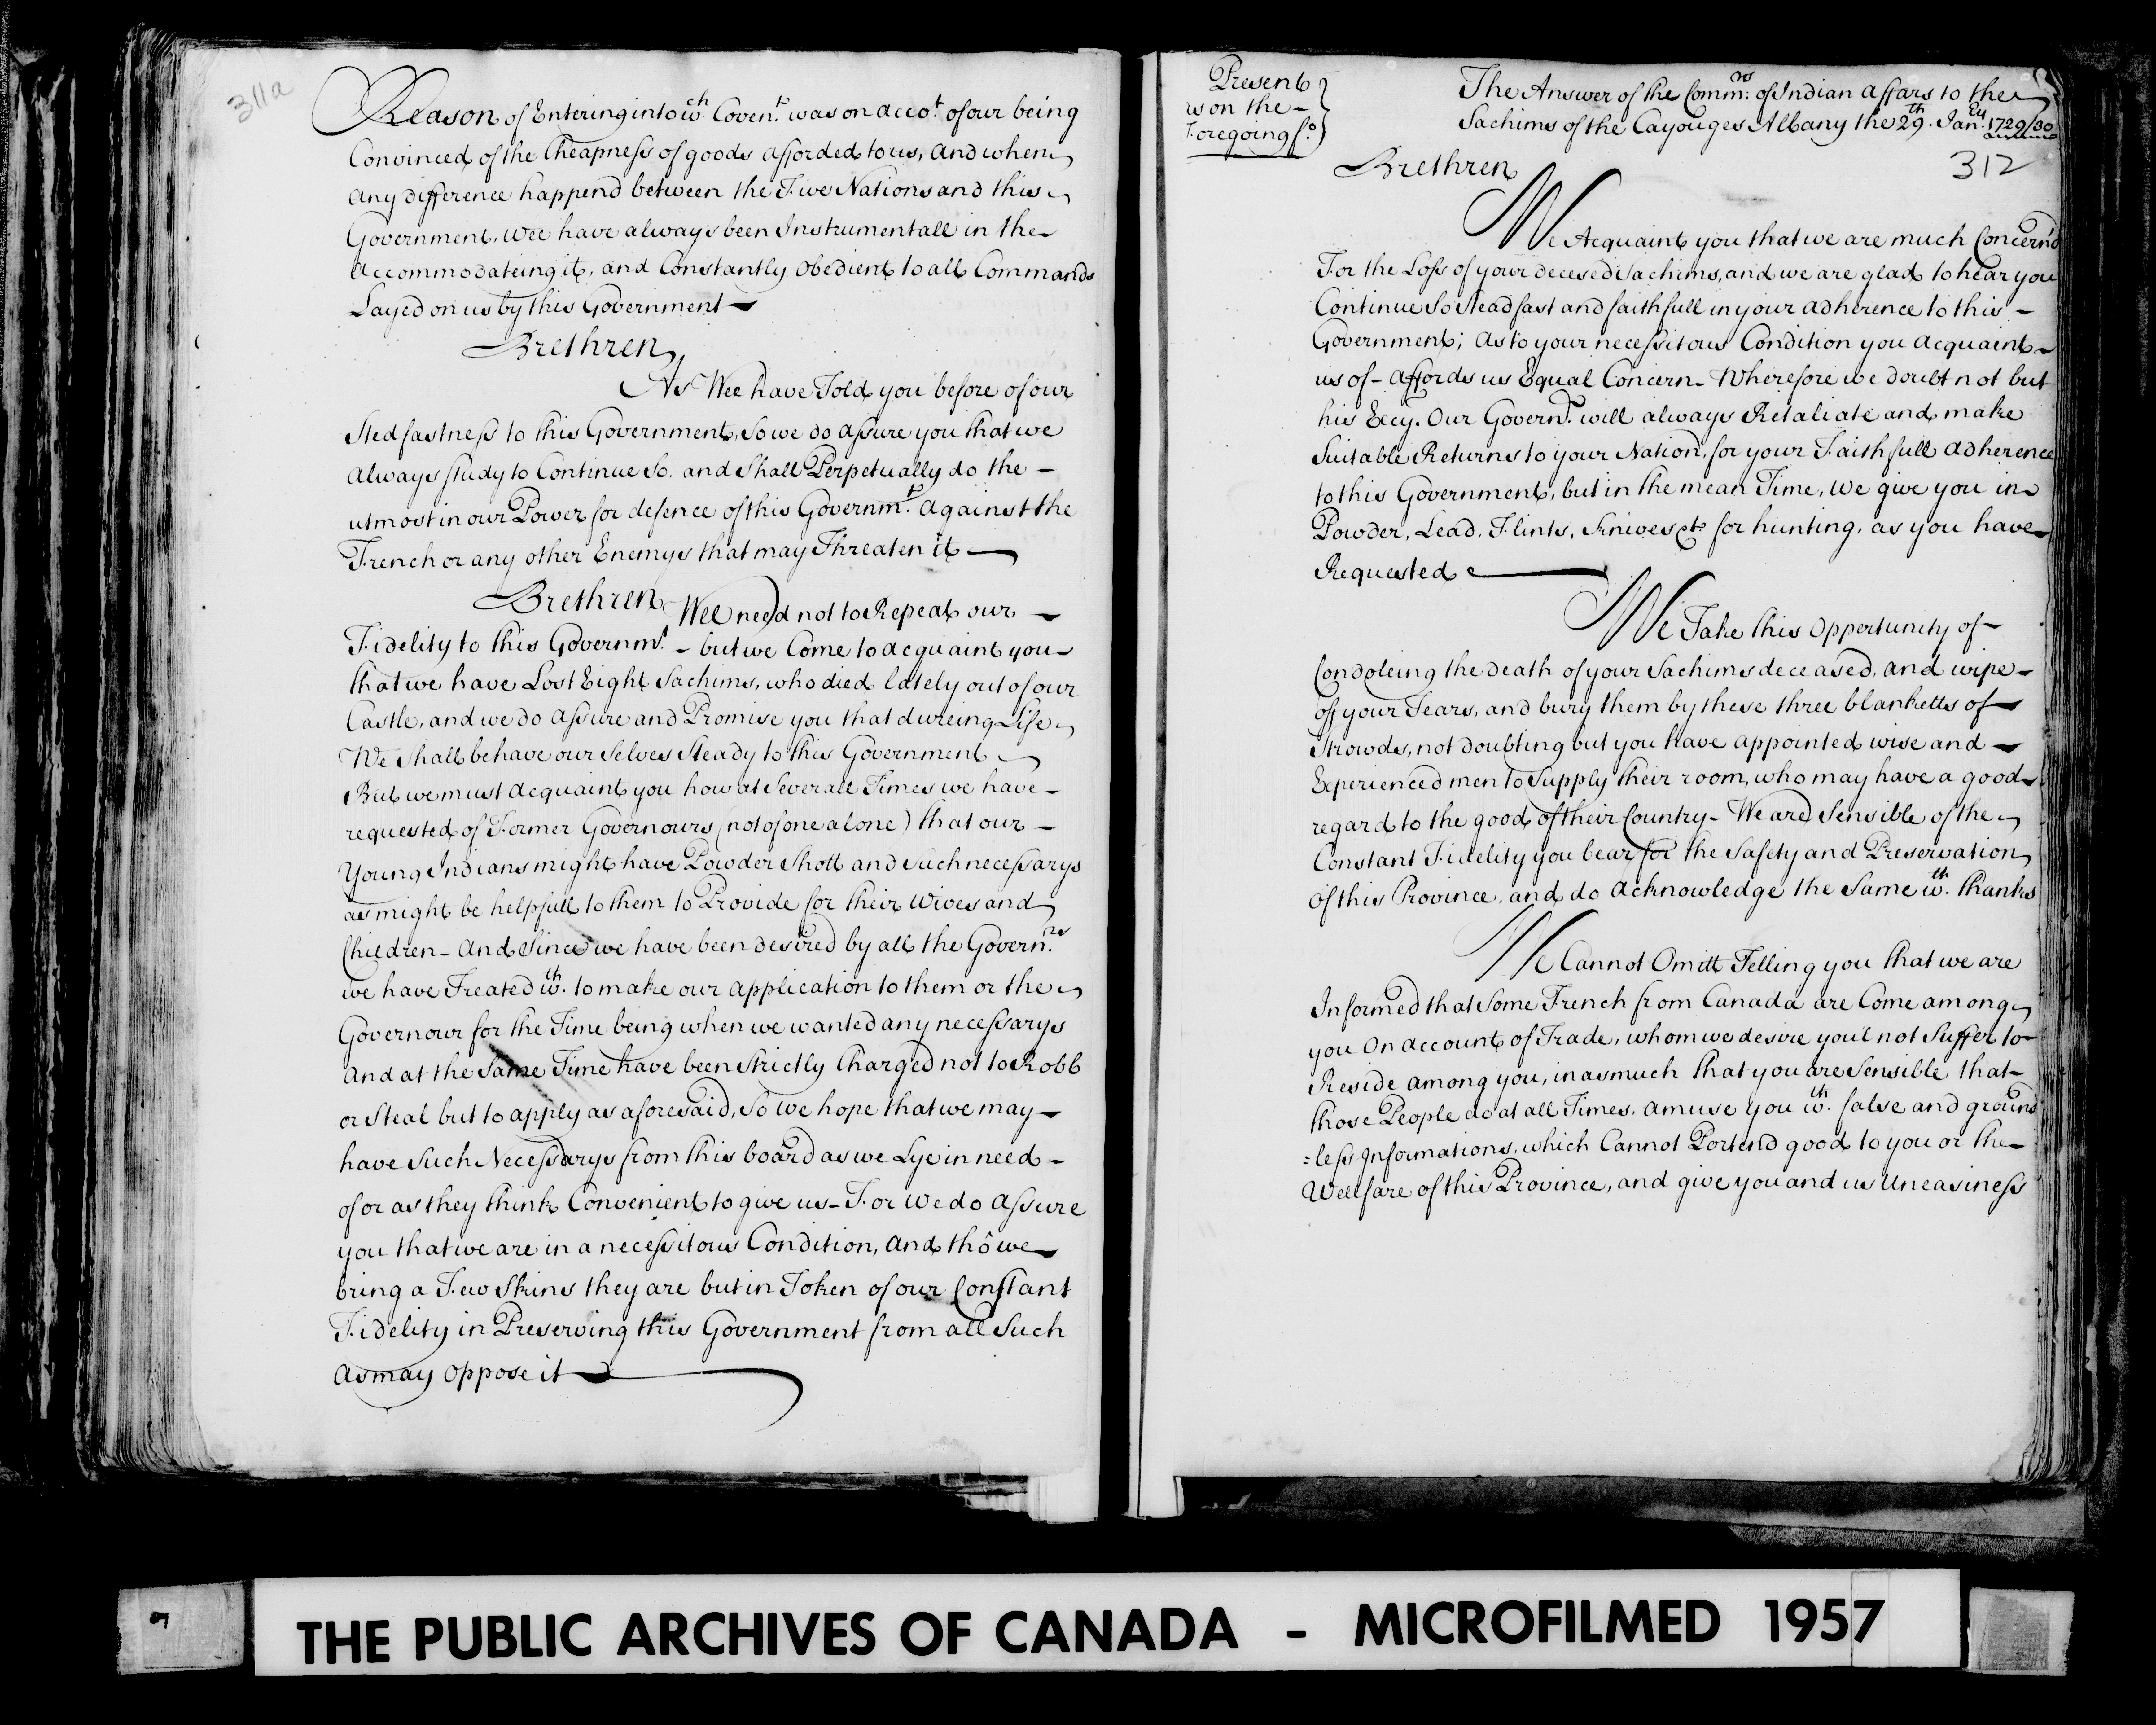 311a
Reason of Entering into wch. Covent. was on accot. of our being
Convinced of the Cheapness of goods afforded to us, and when
any difference happend between the Five Nations and this
Government, wee have always been Instrumentall in the
accommodateing it, and Constantly obedient to all Commands
Layed on us by this Government
Brethren
As Wee have Told you before of our
Stedfastness to this Government, so we do assure you that we
always study to Continue so. and shall Perpetually do the
utmost in our Power for defence of this Governmt. against the
French or any other Enemys that may Threaten it
Brethren Wee need not to Repeat our
Fidelity to this Governmt. - but we Come to acquaint you
that we have Lost Eight Sachims, who died lately out of our
Castle, and we do assure and Promise you that dureing Life
We shall behave our selves steady to this Government
But we must acquaint you how at Severall Times we have
requested of Former Governours (not of one alone) that our
Young Indians might have Powder Shott and such necessarys
as might be helpfull to them to Provide for their wives and
Children - And since we have been desired by all the Governrs.
we have Treated wth. to make our application to them or the
Governour for the Time being when we wanted any necessarys
and at the same Time have been strictly Charged not to Robb
or Steal but to apply as aforesaid, so we hope that we may
have such Necessarys from this board as we Lye in need
of or as they think Convenient to give us - For we do assure
you that we are in a necessitous Condition, and thô we
bring a Few Skins they are but in Token of our Constant
Fidelity in Preserving this Government from all such
as may oppose it
Present
is on the
Foregoing fo.
The Answer of the Commrs. of Indian affars to the
Sachims of the Cayouges Albany the 29th. Janry. 1729/30
312
Brethren
We Acquaint you that we are much Concern'd
For the Loss of your decesed Sachims, and we are glad to hear you
Continue so steadfast and faithfull in your adherence to this
Government; as to your necessitous Condition you acquaint
us of - affords us Equal Concern - Wherefore we doubt not but
his Excy. Our Governr. will always Retaliate and make
Suitable Returns to your Nation, for your Faithfull adherence
to this Government, but in the mean Time, we give you in
Powder, Lead, Flints, Knives &ct. for hunting, as you have
Requested
We Take this Oppertunity of
Condoleing the death of your Sachims deceased, and wipe
off your Tears, and bury them by these three blanketts of
Strowds, not doubting but you have appointed wise and
Experienced men to supply their room, who may have a good
regard to the good of their Country - We are Sensible of the
Constant Fidelity you bear for the safety and Preservation
of this Province, and do acknowledge the same wth. thanks
We Cannot Omitt Telling you that we are
Informed that some French from Canada are Come among
you On account of Trade, whom we desire you'l not Suffer to
Reside among you, in as much that you are Sensible that
those People do at all Times, amuse you wth. false and ground
=less Informations, which Cannot Portend good to you or the
Wellfare of this Province, and give you and us Uneasiness
THE PUBLIC ARCHIVES OF CANADA - MICROFILMED 1957